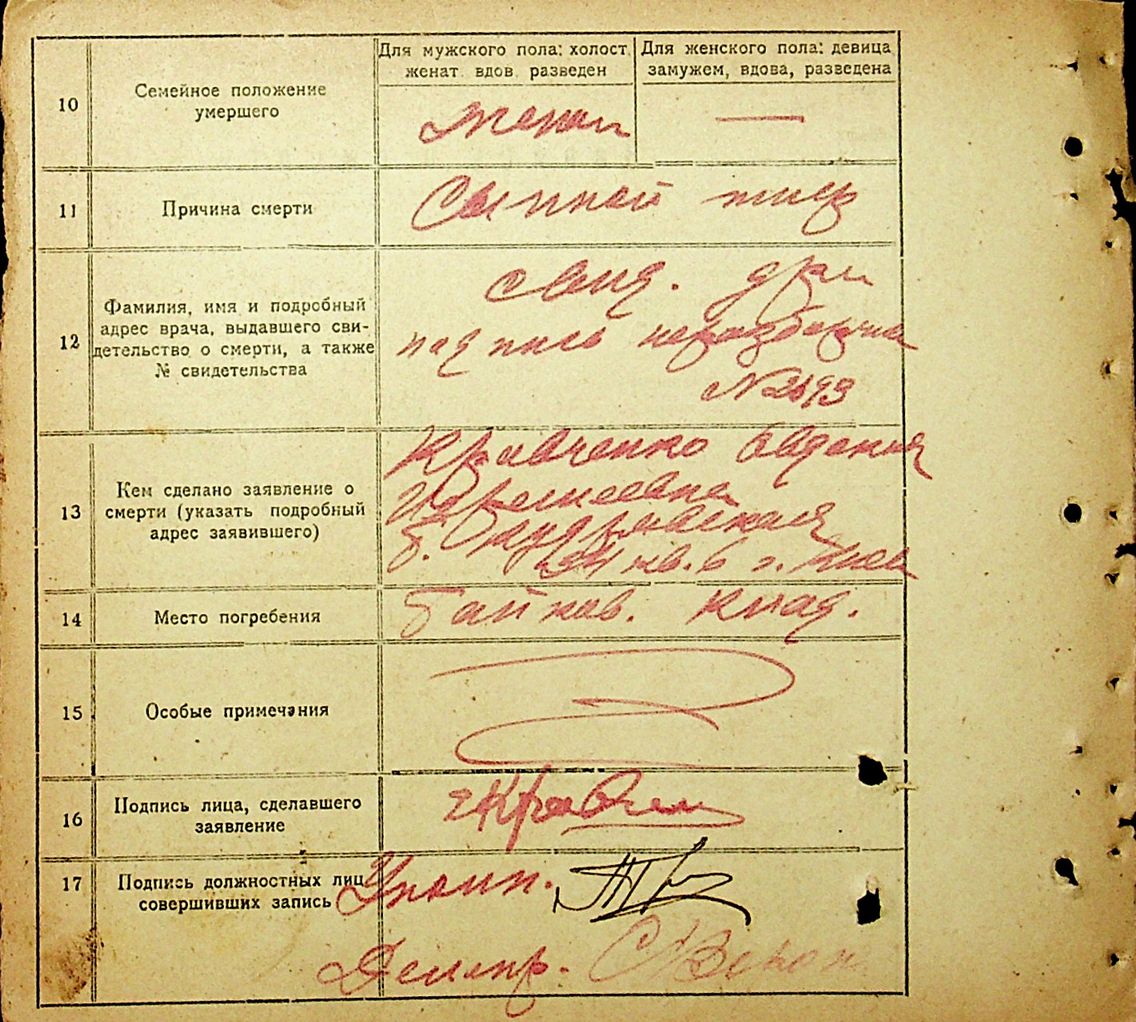 Для мужского пола: холост Для женского пола: девица
женат вдов разведен замужем, вдова, разведена
10 Семейное положение
умершего
женат —
11 Причина смерти Сыпной тиф
12 Фамилия, имя и подробный
адрес врача, выдавшего сви-
детельство о смерти, а также
№ свидетельства
свид.
подпись неразборчива
13 Кем сделано заявление о
смерти (указать подробный
адрес заявившего)
Кравченко Евдокия
кв. 6 г. Киев
14 Место погребения Байков. клад.
15 Особые примечания
16 Подпись лица, сделавшего
заявление
17 Подпись должностных лиц
совершивших запись
Делопр.